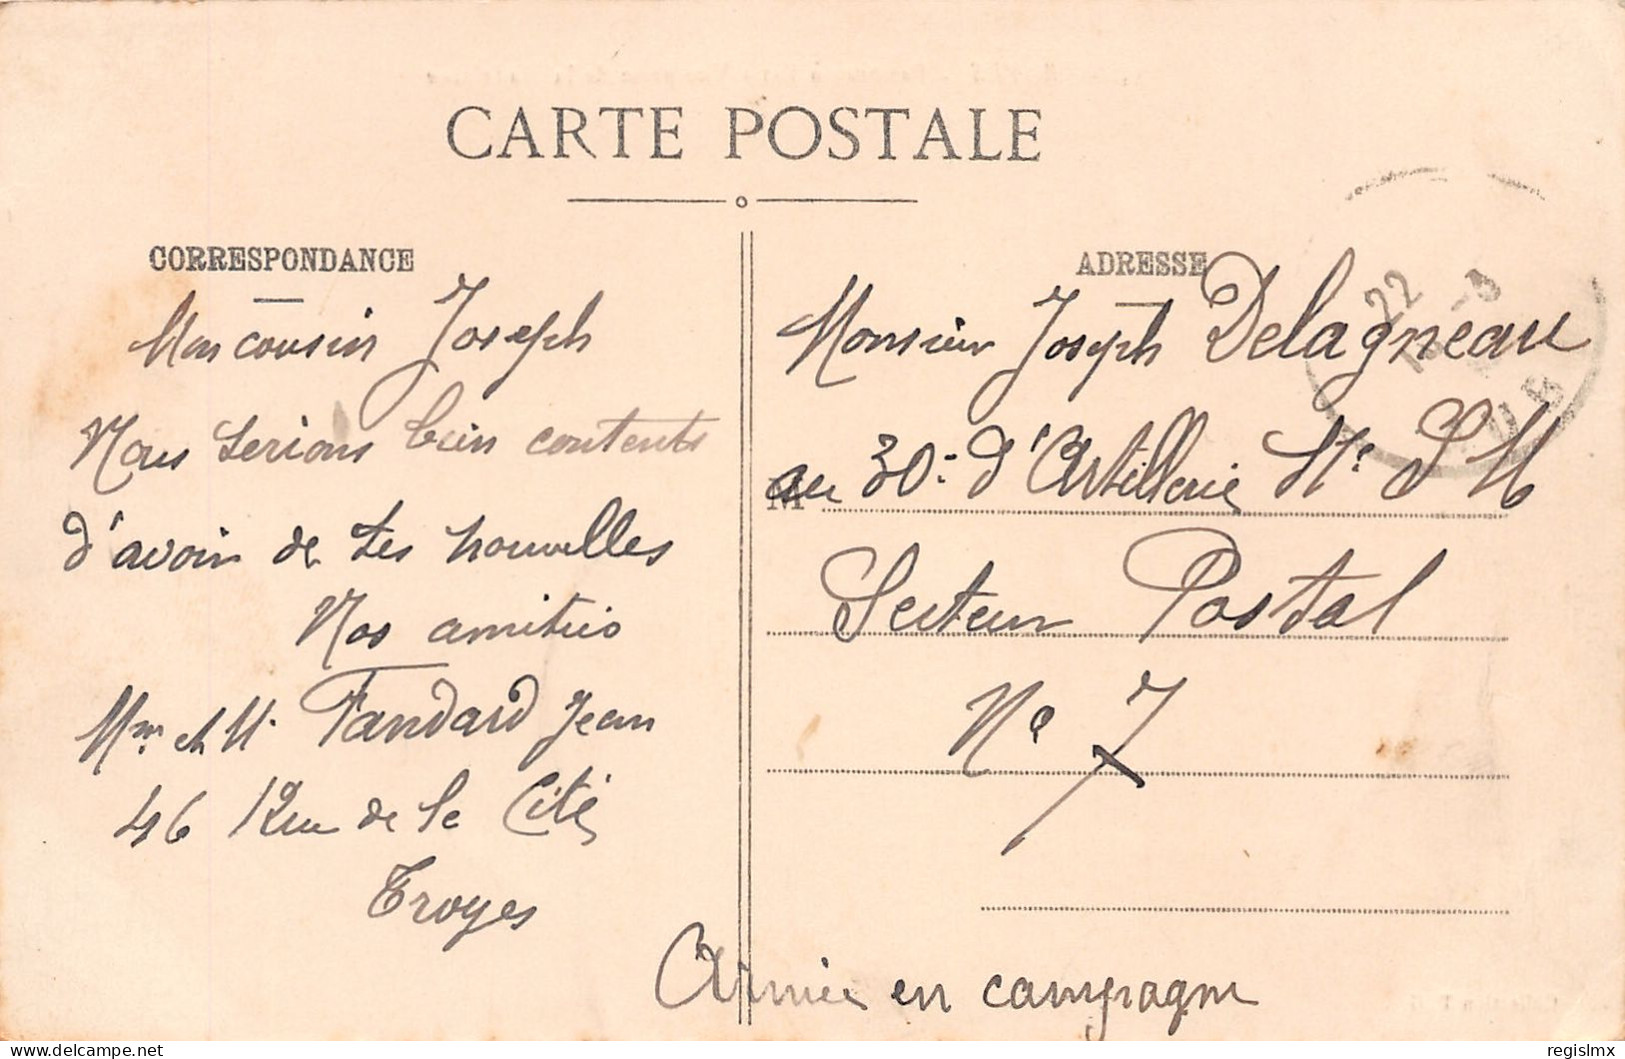 CARTE POSTALE
CORRESPONDANCE
Mon cousin Joseph
Nous serions bien contents
d'avoir de tes nouvelles
Nos amitiés
Mme et M. Tandard Jean
46 Rue de la Cité
Troyes
ADRESSE
Monsieur Joseph Delagneau
M
au 30e d'Artillerie
Secteur Postal
No 7
Armée en campagne
22
regislmx